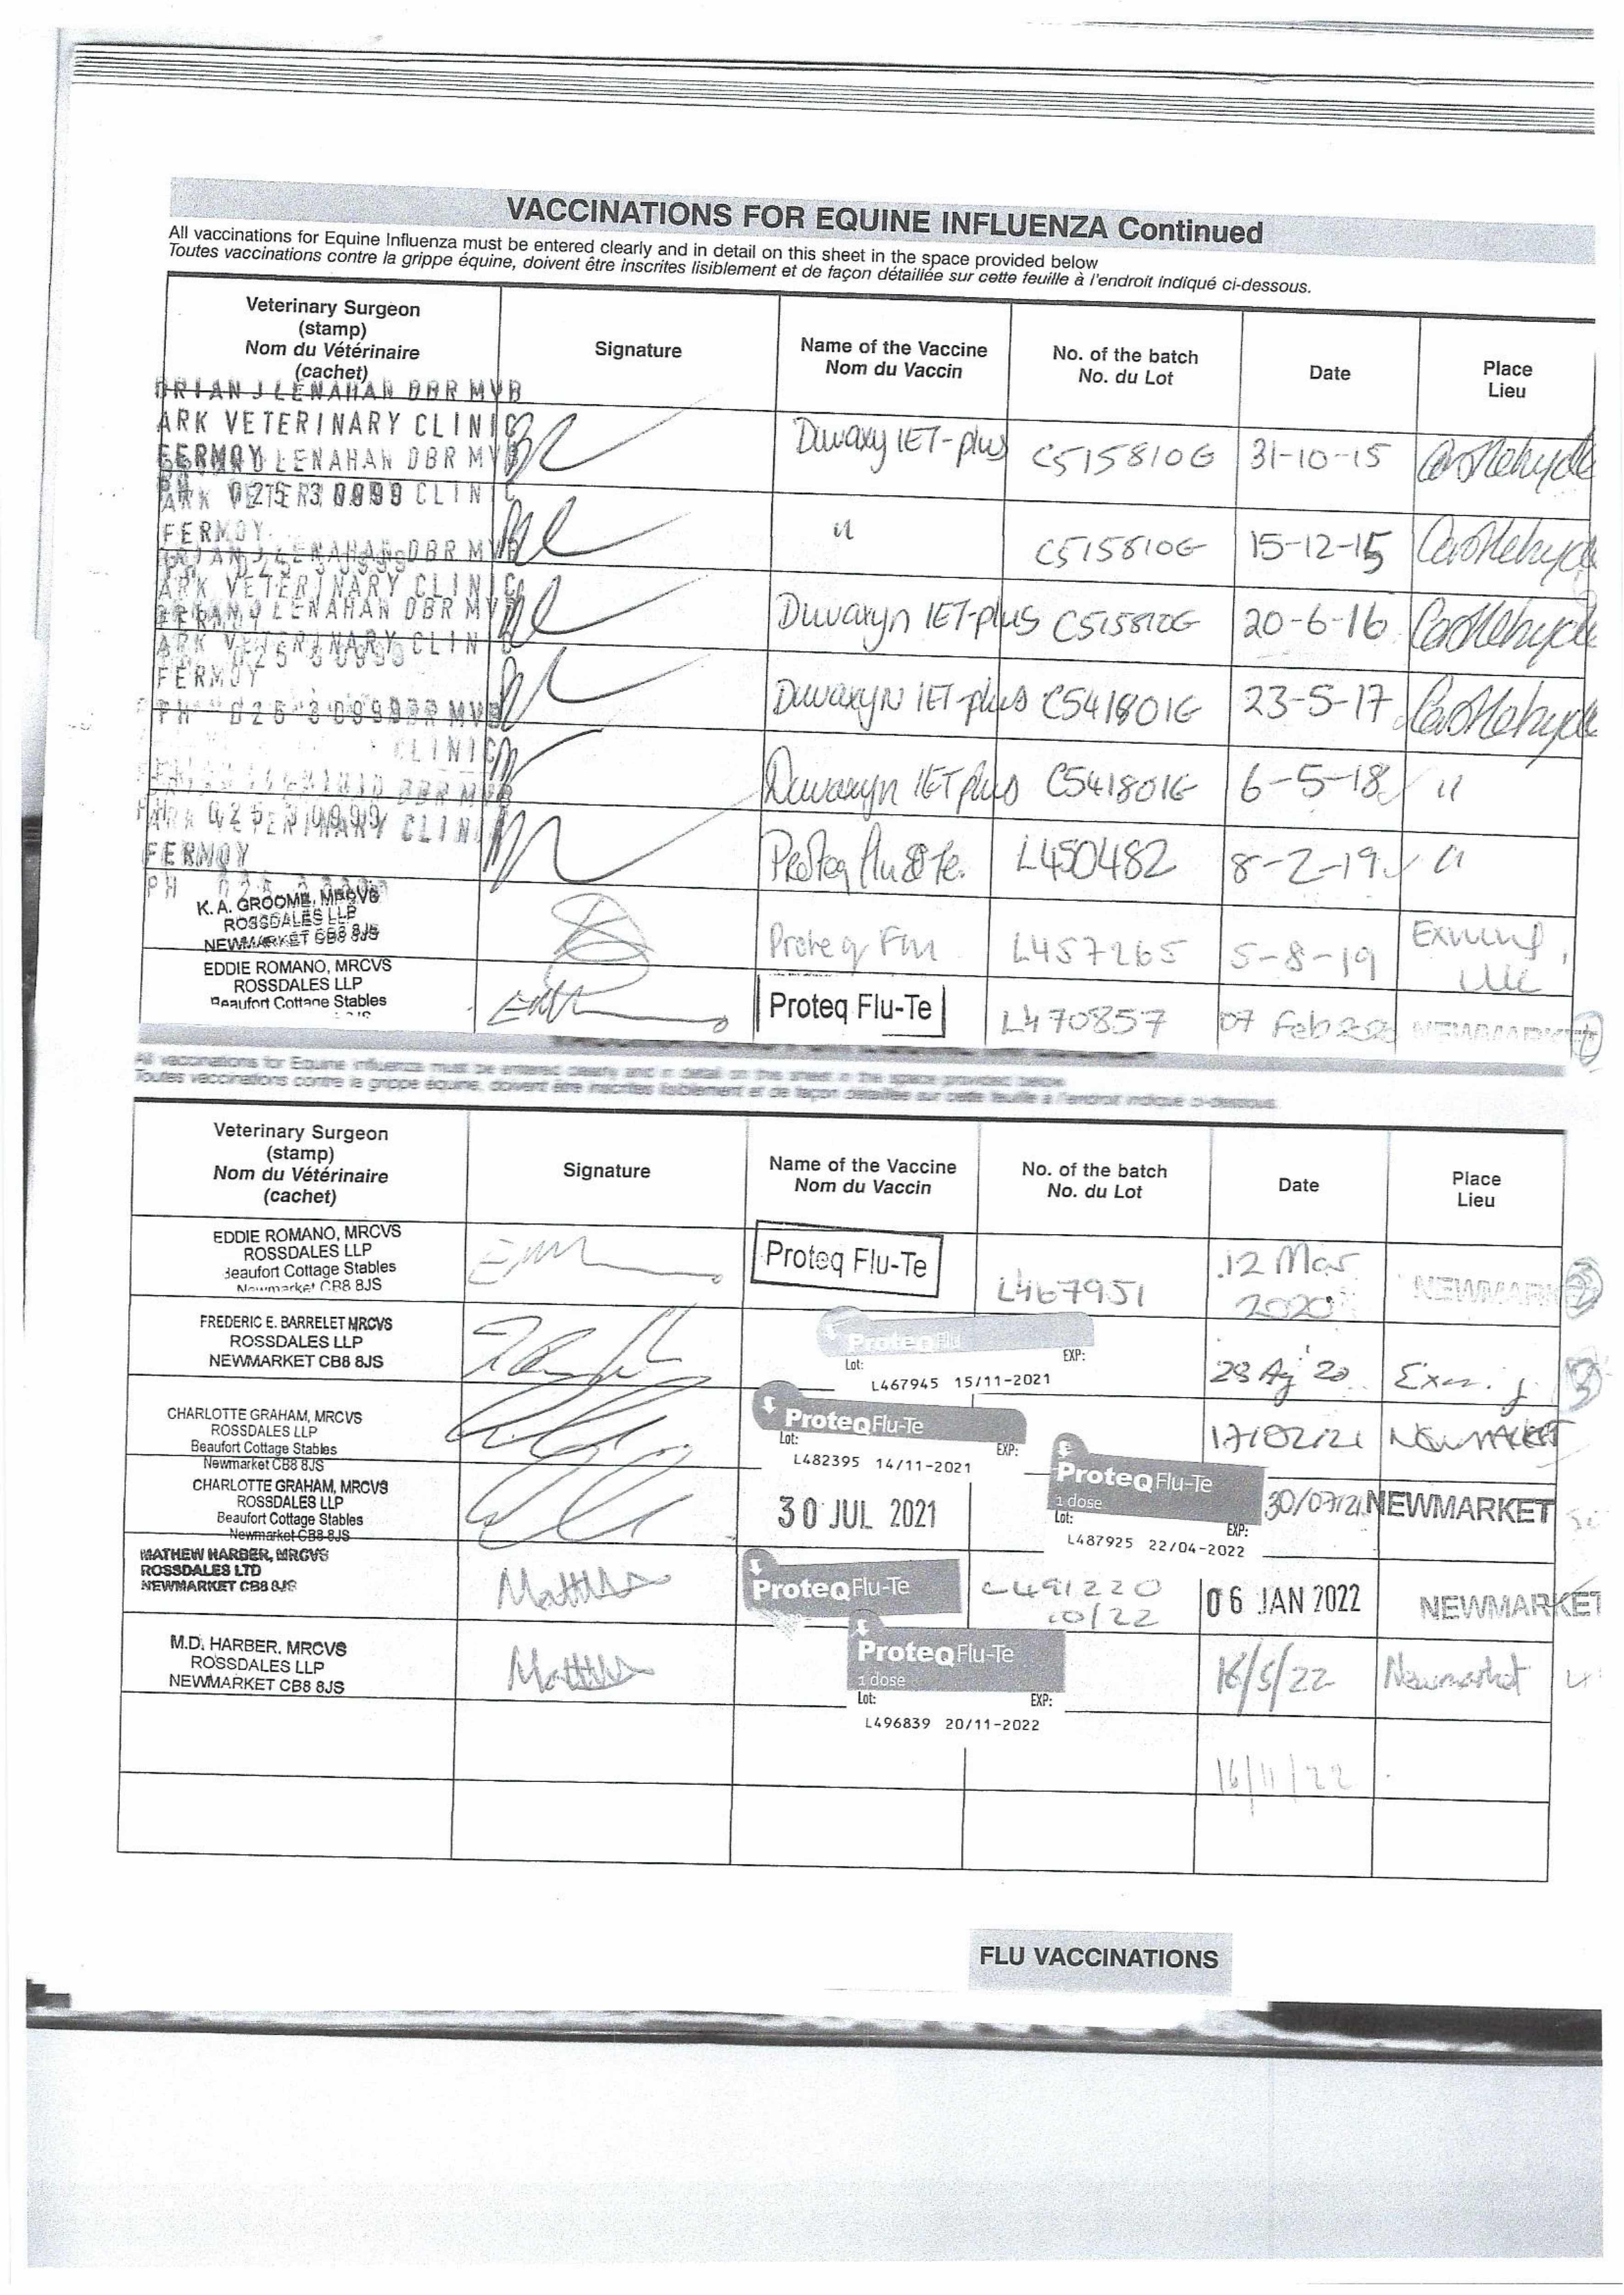 VACCINATIONS FOR EQUINE INFLUENZA Continued
All vaccinations for Equine Influenza must be entered clearly and in detail on this sheet in the space provided below
Toutes vaccinations contre la grippe équine, doivent être inscrites lisiblement et de façon détaillée sur cette feuille à l'endroit indiqué ci-dessous.
Veterinary Surgeon
(stamp)
Nom du Vétérinaire
(cachet)
Signature
Name of the Vaccine
Nom du Vaccin
No. of the batch
No. du Lot
Date
Place
Lieu
BRIAN J LENAHAN DBR MVB
ARK VETERINARY CLINIC
FERMOY
Duvaxy IET-plus C515810G 31-10-15 Castlehyde
LENAHAN DBR MVB
CLINIC
FERMOY
" C515810G 15-12-15 Castlehyde
LENAHAN DBR MVB
ARK VETERINARY CLINIC
Duvaxyn IET-plus C515810G 20-6-16 Castlehyde
LENAHAN DBR MVB
ARK VETERINARY CLINIC
FERMOY
Duvaxyn IET-plus C541801G 23-5-17 Castlehyde
CLINIC
Duvaxyn IET plus C541801G 6-5-18 "
VETERINARY CLINIC
FERMOY
PH
Proteq flu Te. L450482 8-2-19 "
K. A. GROOME, MRCVS
ROSSDALES LLP
NEWMARKET CB8 8JS
Proteq Flu L457265 5-8-19 Exning,
UK
EDDIE ROMANO, MRCVS
ROSSDALES LLP
Beaufort Cottage Stables
Proteq Flu-Te L470857 07 Feb 2020 NEWMARKET
All vaccinations for Equine Influenza must be entered clearly and in detail on this sheet in the space provided below
Toutes vaccinations contre la grippe équine, doivent être inscrites lisiblement et de façon détaillée sur cette feuille à l'endroit indiqué ci-dessous.
Veterinary Surgeon
(stamp)
Nom du Vétérinaire
(cachet)
Signature
Name of the Vaccine
Nom du Vaccin
No. of the batch
No. du Lot
Date
Place
Lieu
EDDIE ROMANO, MRCVS
ROSSDALES LLP
Beaufort Cottage Stables
Newmarket CB8 8JS
Proteq Flu-Te
L467951
12 Mar
2020
NEWMARKET
FREDERIC E. BARRELET MRCVS
ROSSDALES LLP
NEWMARKET CB8 8JS
ProteqFlu
Lot: EXP:
L467945 15/11-2021
Exning
CHARLOTTE GRAHAM, MRCVS
ROSSDALES LLP
Beaufort Cottage Stables
Newmarket CB8 8JS
ProteqFlu-Te
Lot: EXP:
L482395 14/11-2021
17/02/21 NEWMARKET
CHARLOTTE GRAHAM, MRCVS
ROSSDALES LLP
Beaufort Cottage Stables
Newmarket CB8 8JS
30 JUL 2021
ProteqFlu-Te
1 dose
Lot: EXP:
L487925 22/04-2022
30/07/21 NEWMARKET
MATHEW HARBER, MRCVS
ROSSDALES LTD
NEWMARKET CB8 8JS
ProteqFlu-Te
L491220
10/22
06 JAN 2022
NEWMARKET
M.D. HARBER. MRCVS
ROSSDALES LLP
NEWMARKET CB8 8JS
ProteqFlu-Te
1 dose
Lot: EXP:
L496839 20/11-2022
16/5/22 Newmarket
16/11/22
FLU VACCINATIONS